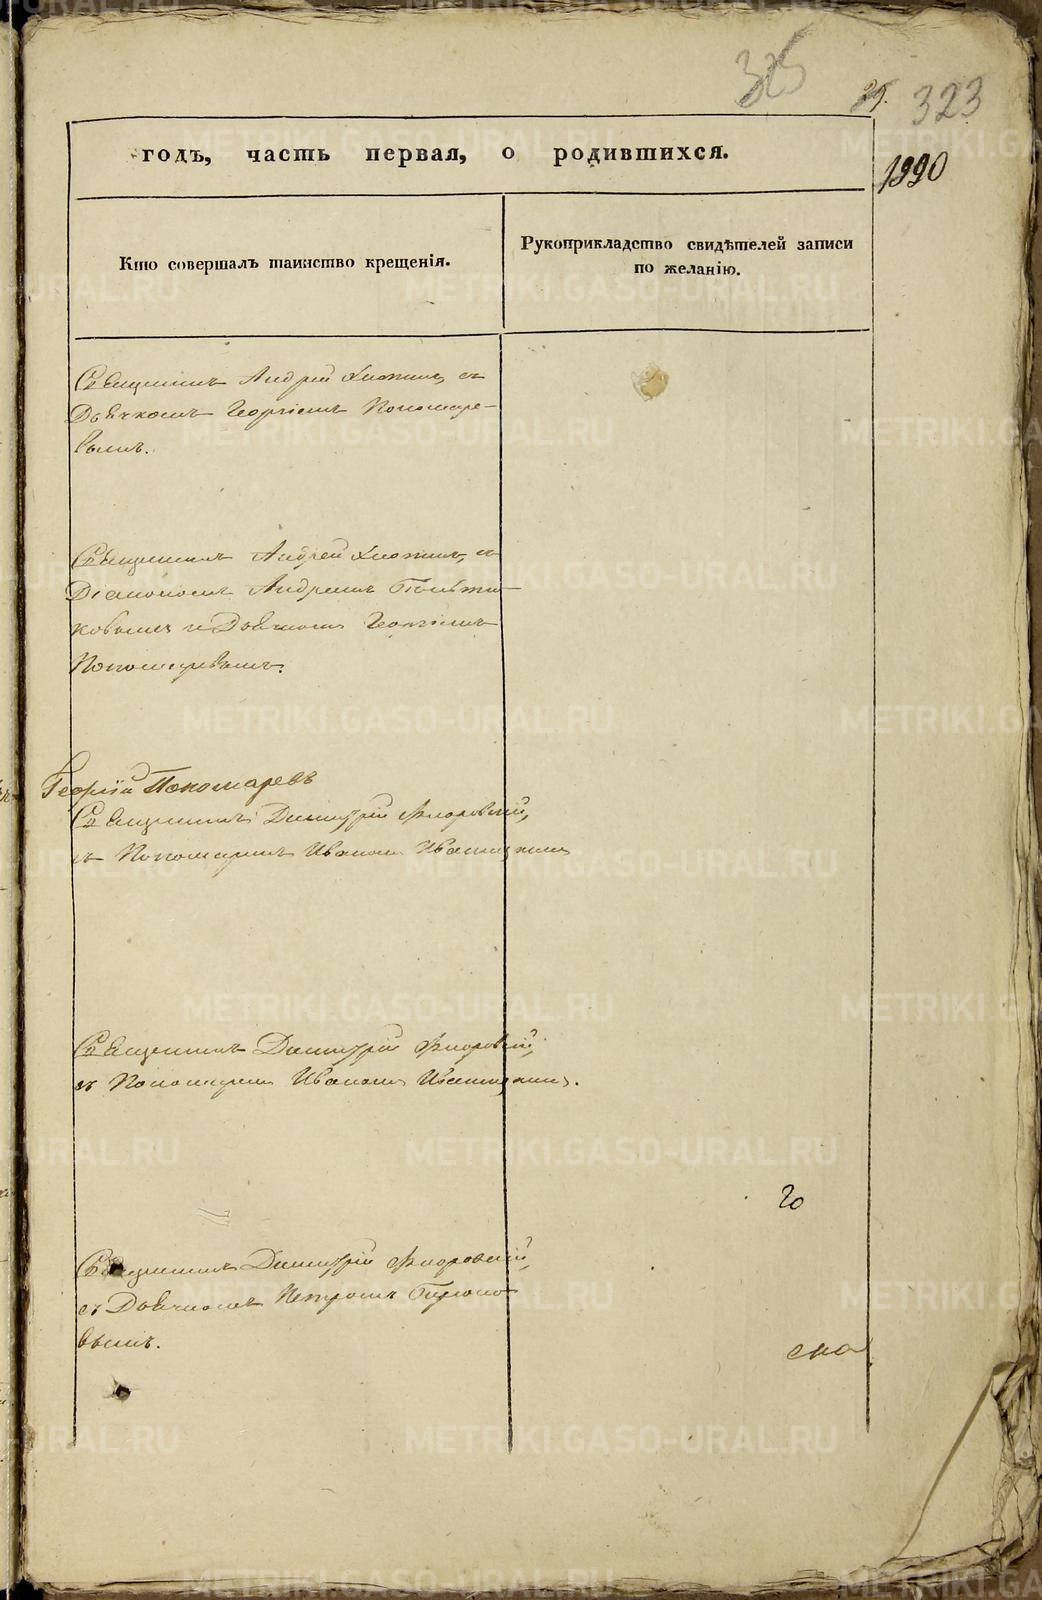 325
29.
323
годъ, часть первая, о родившихся.
1990
Кто совершалъ таинство крещенія.
Рукоприкладство свидѣтелей записи
по желанію.
Священникъ Андрей съ
Дьячкомъ Георгіемъ Пономаре-
вымъ.
Священникъ Андрей съ
Діакономъ Андреемъ
ковымъ и Дьячкомъ Георгіемъ
Пономаревымъ.
Георгій Пономаревъ
Священникъ Димитрій Флоровскій,
съ Пономаремъ Иваномъ
Священникъ Димитрій Флоровскій,
съ Пономаремъ Иваномъ
го
Священникъ Димитрій Флоровскій,
съ Дьячкомъ Петромъ
вымъ.
ска
METRIKI.GASO-URAL.RU